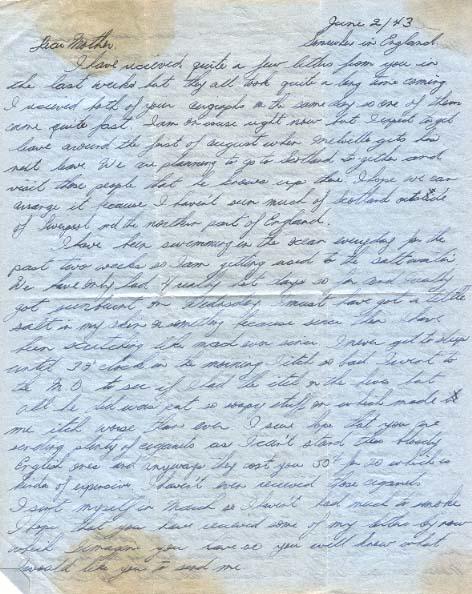 June 2/43
Dear Mother. Somewhere in England
I have recieved quite a few letters from you in
the last weeks but they all took quite a long time coming
I received both of your airgraphs on the same day so one of them
came quite fast. I am on course right now but I expect to get
leave around the first of august when Melville gets his
next leave. We are planning to go to Scotland together and
visit those people that he knows up there I hope we can
arrange it because I haven't seen much of Scotland outside
of Liverpool and the northern part of England.
I have been swimming in the ocean everyday for the
past two weeks so I am getting used to the salt water
We have only had really hot days so far and I really
got sunburnt on Wednesday I must have got a little
salt in my skin or something because since then I have
been scratching like mad ever since. I never got to sleep
until 3 o'clock in the morning I itch so bad I went to
the M.O. to see if I had the itch or the hives but
all he did was put so soapy stuff on which made
me itch worse than ever I sure hope that you are
sending plenty of cigarets as I can't stand these bloody
English ones and anyways they cost you 50¢ for 20 which is
kinda of expensive I haven't even received those cigarets
I sent myself in March so I haven't had much to smoke
I hope that you have received some of my letters by now
which I imagine you have so you will know what
I would like you to send me